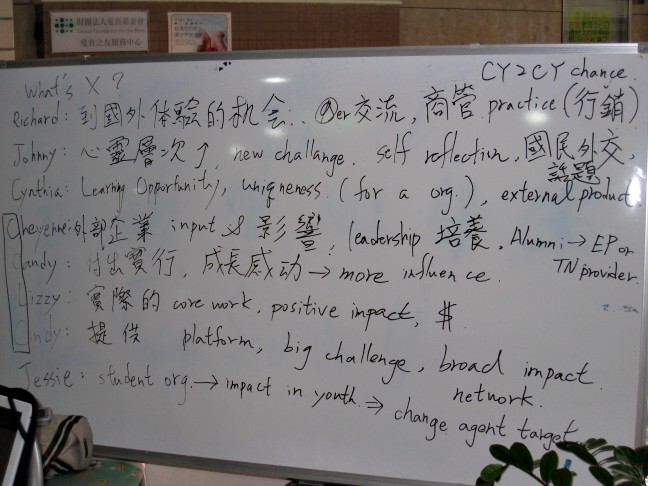 財團法人愛盲基金會
Taiwan Foundation for the Blind
愛盲之友服務中心
CY2CY change.
What's X ?
Richard: 到國外体驗的机会.. er交流, 商营 practice (行銷)
Johnny: 心靈層次↑, new challange. self reflection, 國民外交,
話題
Cynthia: Learning Opportunity, uniqeness. (for a org.), external product.
Cheyenne: 外部企業 input & 影響, leadership 培養, Alumni → EP or
TN provider.
Candy: 付出實行, 成長感动 → more influence.
Lizzy: 實際的 core work, positive impact, $.
Cindy: 提供 platform, big challenge, broad impact.
network.
Jessie: student org. → impact in youth. → change agent target